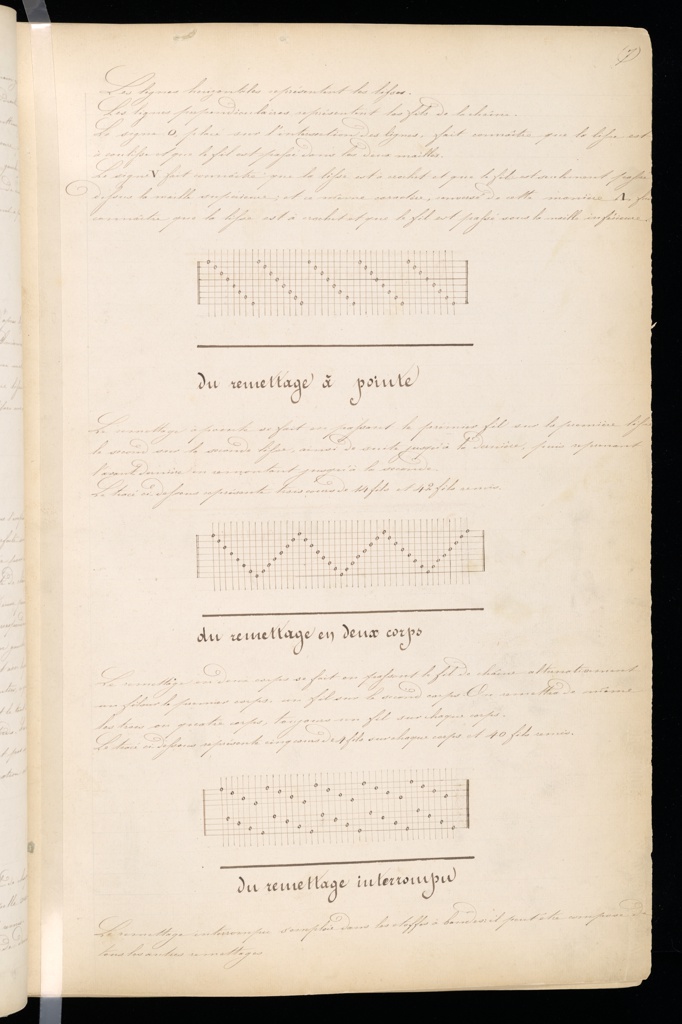 (7)
Les lignes horizontales représentent les lisses.
Les lignes perpendiculaires représentent les fils de la chaîne.
Le signe O, placé sur l'intersection des lignes, fait connaître que la lisse est
à coulisse et que le fil est passé dans les deux mailles.
Le signe V fait connaître que la lisse est à crochet et que le fil est seulement passé
dessous la maille supérieure; et ce même caractère, renversé de cette manière Λ, fait
connaître que la lisse est à crochet et que le fil est passé sous la maille inférieure.
du remettage à pointe
Le remettage à pointe se fait en passant le premier fil sur la première lisse
le second sur la seconde lisse, ainsi de suite jusqu'à la dernière, puis reprenant
l'avant dernière en remontant jusqu'à la seconde.
Le tracé ci dessous représente trois courses de 14 fils et 42 fils remis.
du remettage en deux corps
Le remettage en deux corps se fait en passant le fil de chaîne alternativement
un fil sur le premier corps, un fil sur le second corps. On remettra de même
les trois ou quatre corps, toujours un fil sur chaque corps.
Le tracé ci dessous représente cinq courses de 4 fils sur chaque corps et 40 fils remis.
du remettage interrompu
Le remettage interrompu s'emploie dans les étoffes à bandes il peut être composé de
tous les autres remettages